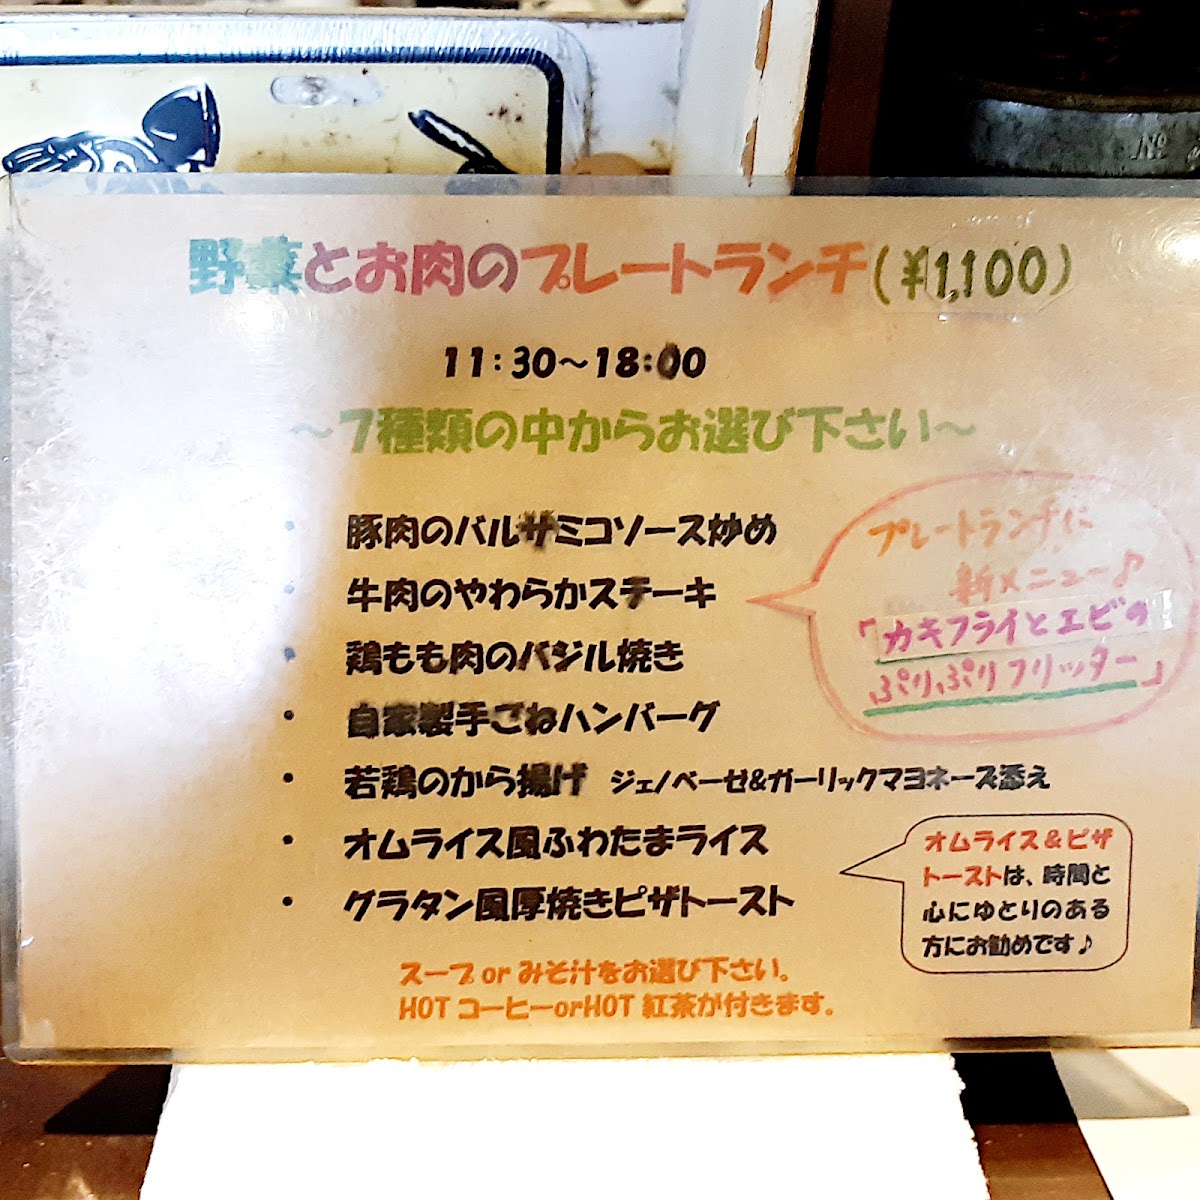 No
野菜とお肉のプレートランチ(¥1,100)
11:30～18:00
～7種類の中からお選び下さい～
・豚肉のバルサミコソース炒め
・牛肉のやわらかステーキ
・鶏もも肉のバジル焼き
・自家製手ごねハンバーグ
・若鶏のから揚げ ジェノベーゼ&ガーリックマヨネーズ添え
・オムライス風ふわたまライス
・グラタン風厚焼きピザトースト
プレートランチに
新メニュー♪
「カキフライとエビの
ぷりぷりフリッター」
オムライス&ピザ
トーストは、時間と
心にゆとりのある
方にお勧めです♪
スープ or みそ汁をお選び下さい。
HOT コーヒーorHOT 紅茶が付きます。